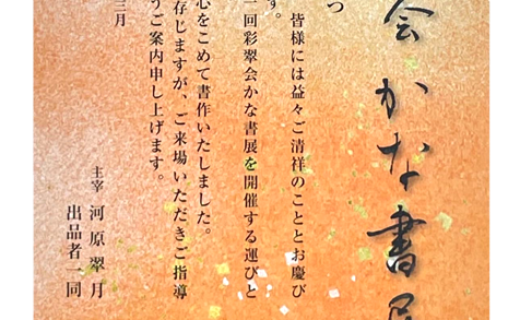 会かな書展
つ
皆様には益々ご清祥のこととお慶び
す。
一回彩翠会かな書展を開催する運びと
心をこめて書作いたしました。
存じますが、ご来場いただきご指導
うご案内申し上げます。
三月
主宰 河原翠月
出品者一同